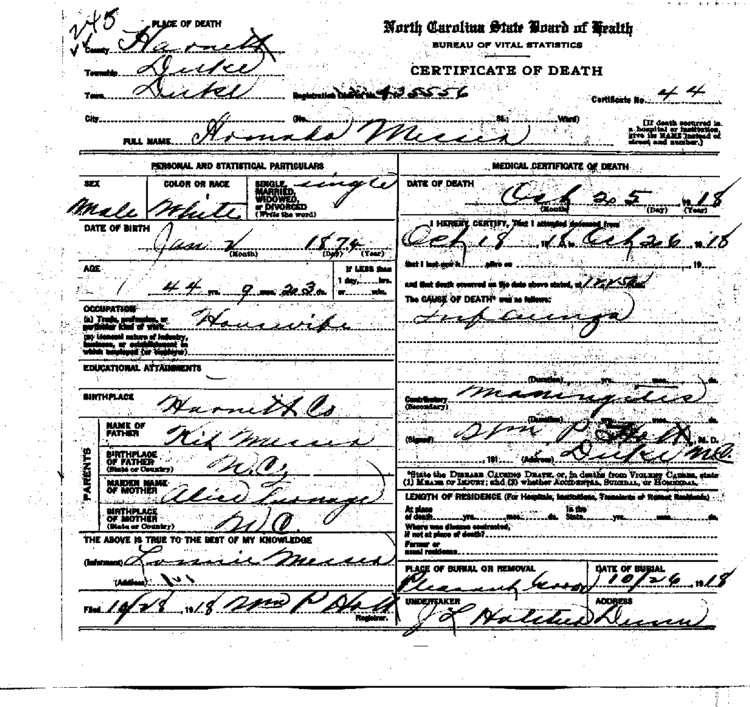 245
PLACE OF DEATH
North Carolina State Board of Health
BUREAU OF VITAL STATISTICS
CERTIFICATE OF DEATH
County Harnett
Township Duke
Town Duke
Registration District No. 435556
Certificate No. 44
City (No. St.; Ward)
[If death occurred in a hospital or institution, give its NAME instead of street and number.]
FULL NAME Messer
PERSONAL AND STATISTICAL PARTICULARS
SEX Male
COLOR OR RACE White
SINGLE, MARRIED, WIDOWED, or DIVORCED (Write the word) Single
DATE OF BIRTH Jan 2 1874
(Month) (Day) (Year)
AGE 44 yrs. 9 mos. 23 ds.
If LESS than 1 day, hrs. or min.
OCCUPATION
(a) Trade, profession, or particular kind of work Housewife
(b) General nature of industry, business, or establishment in which employed (or employer)
EDUCATIONAL ATTAINMENTS
BIRTHPLACE Harnett Co
PARENTS
NAME OF FATHER Messer
BIRTHPLACE OF FATHER (State or Country) N.C.
MAIDEN NAME OF MOTHER Alice Turnage
BIRTHPLACE OF MOTHER (State or Country) N.C.
THE ABOVE IS TRUE TO THE BEST OF MY KNOWLEDGE
(Informant) Lonnie Messer
(Address)
Filed 10/28, 1918 Wm P Holt
Registrar.
MEDICAL CERTIFICATE OF DEATH
DATE OF DEATH Oct 25 1918
(Month) (Day) (Year)
I HEREBY CERTIFY, That I attended deceased from
Oct 18 1918, to Oct 26, 1918
that I last saw h alive on 19
and that death occurred on the date above stated, at
The CAUSE OF DEATH* was as follows:
Influenza
(Duration) yrs. mos. ds.
Contributory (Secondary) Maningitis
(Duration) yrs. mos. ds.
(Signed) Wm P Holt, M. D.
191 (Address) Duke N.C.
*State the DISEASE CAUSING DEATH, or, in deaths from VIOLENT CAUSES, state (1) MEANS OF INJURY; and (2) whether ACCIDENTAL, SUICIDAL, or HOMICIDAL.
LENGTH OF RESIDENCE (For Hospitals, Institutions, Transients or Recent Residents)
At place of death yrs. mos. ds. In the State yrs. mos. ds.
Where was disease contracted, if not at place of death?
Former or usual residence
PLACE OF BURIAL OR REMOVAL Pleasant Grove
DATE OF BURIAL 10/26 1918
UNDERTAKER J L Hatcher
ADDRESS Dunn